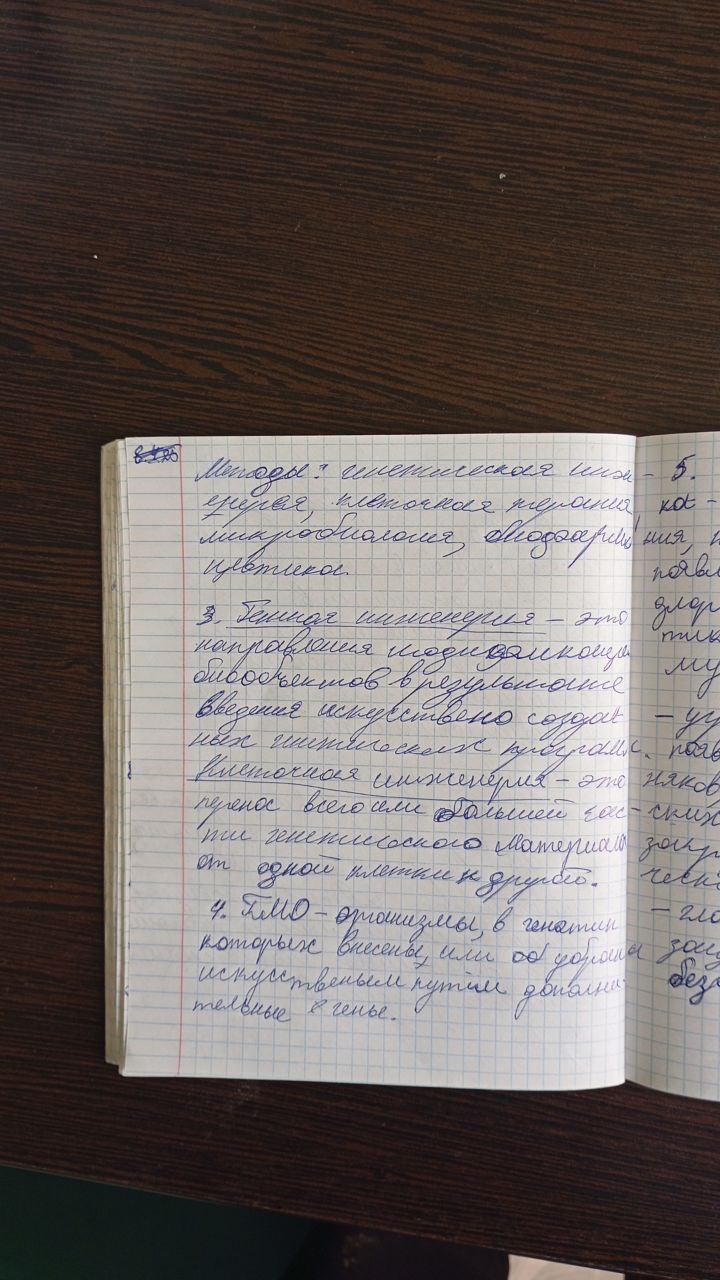 Методы: генетическая инж-
ерерия, клеточная терапия,
микробиология, биофарма
цевтика.
3. Генная инженерия – это
направления модификации
биообъектов в результате
введения искусствено создан
ных генетических программ.
Клеточная инженерия – это
перенос всего или большей час-
ти генетического материала
от одной клетки к другой.
4. ГМО – организмы, в генотип
которых внесены, или удбраны
искусственым путём дополни-
тельные генье.
5.
ка-
ния,
появл
длор
тла
му
– уу
появ
няков,
ских
закр
ческ
– гло
защ
без